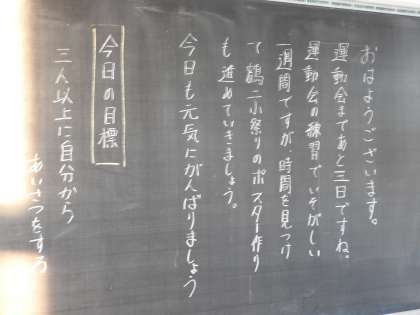 おはようございます。
運動会まであと三日ですね。
運動会の練習でいそがしい
一週間ですが、時間を見つけ
て鶴二小祭りのポスター作り
も進めていきましょう。
今日も元気にがんばりましょう
今日の目標
三人以上に自分から
あいさつをする